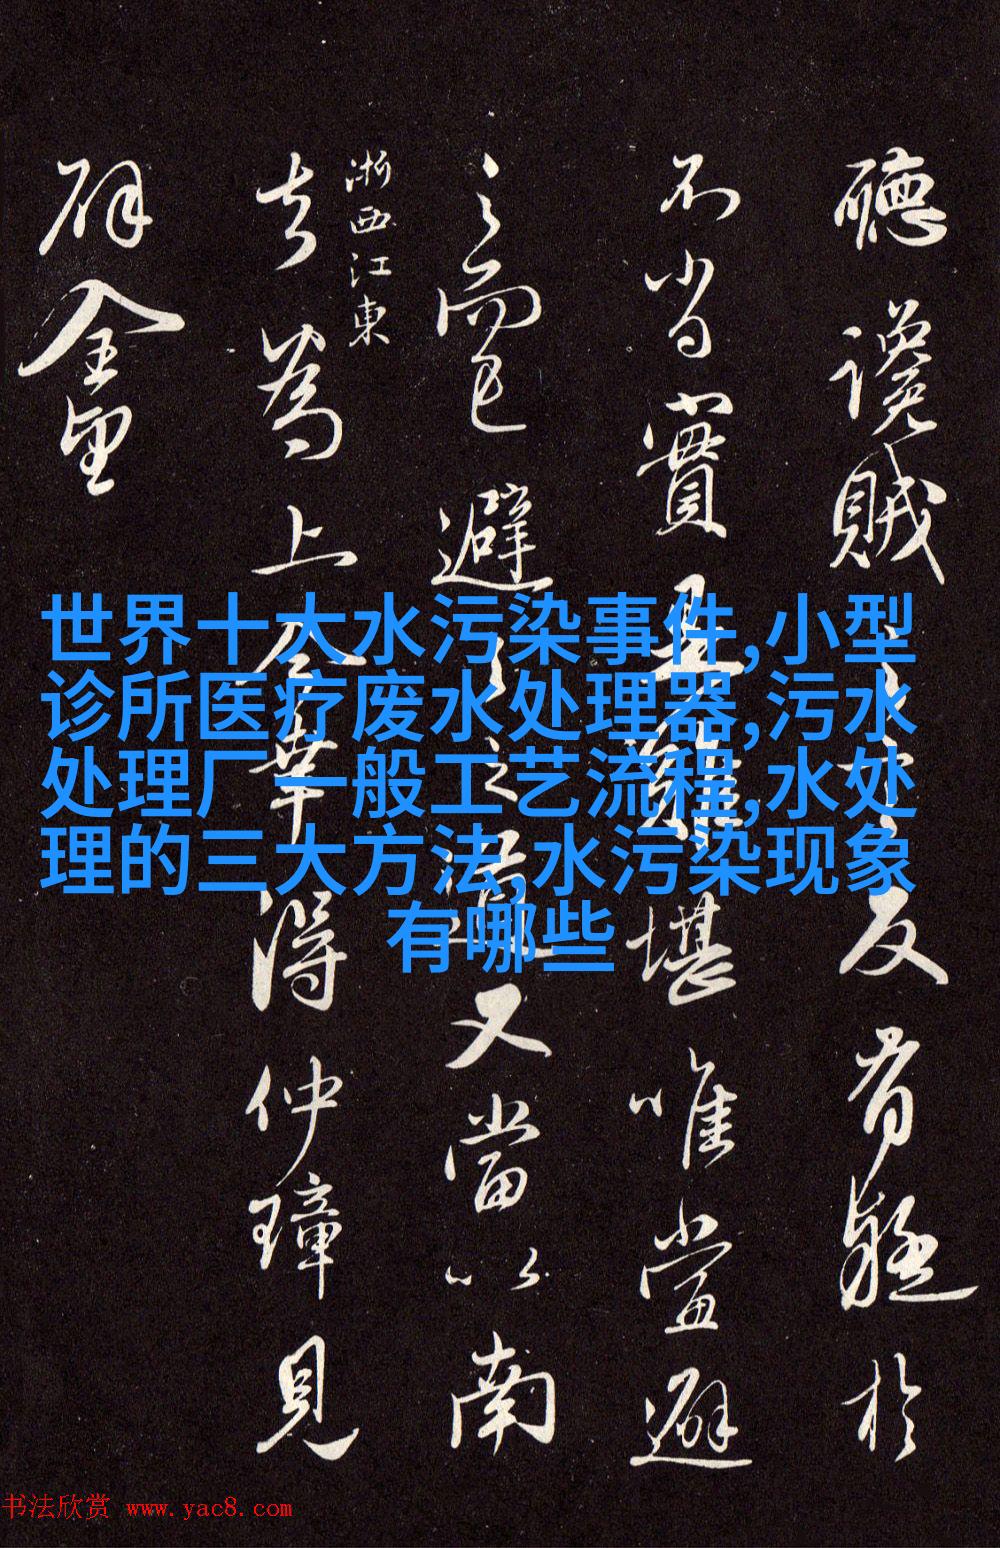 聽讒賊之言反有疑於
不肖實難堪唯當避
之而已避之之道又當以南
去為上今幸得仲璋見
浙西江東
辟金
世界十大水污染事件,小型
诊所医疗废水处理器,污水
处理厂一般工艺流程,水处
理的三大方法,水污染现象
有哪些
书法欣赏 www.yac8.com